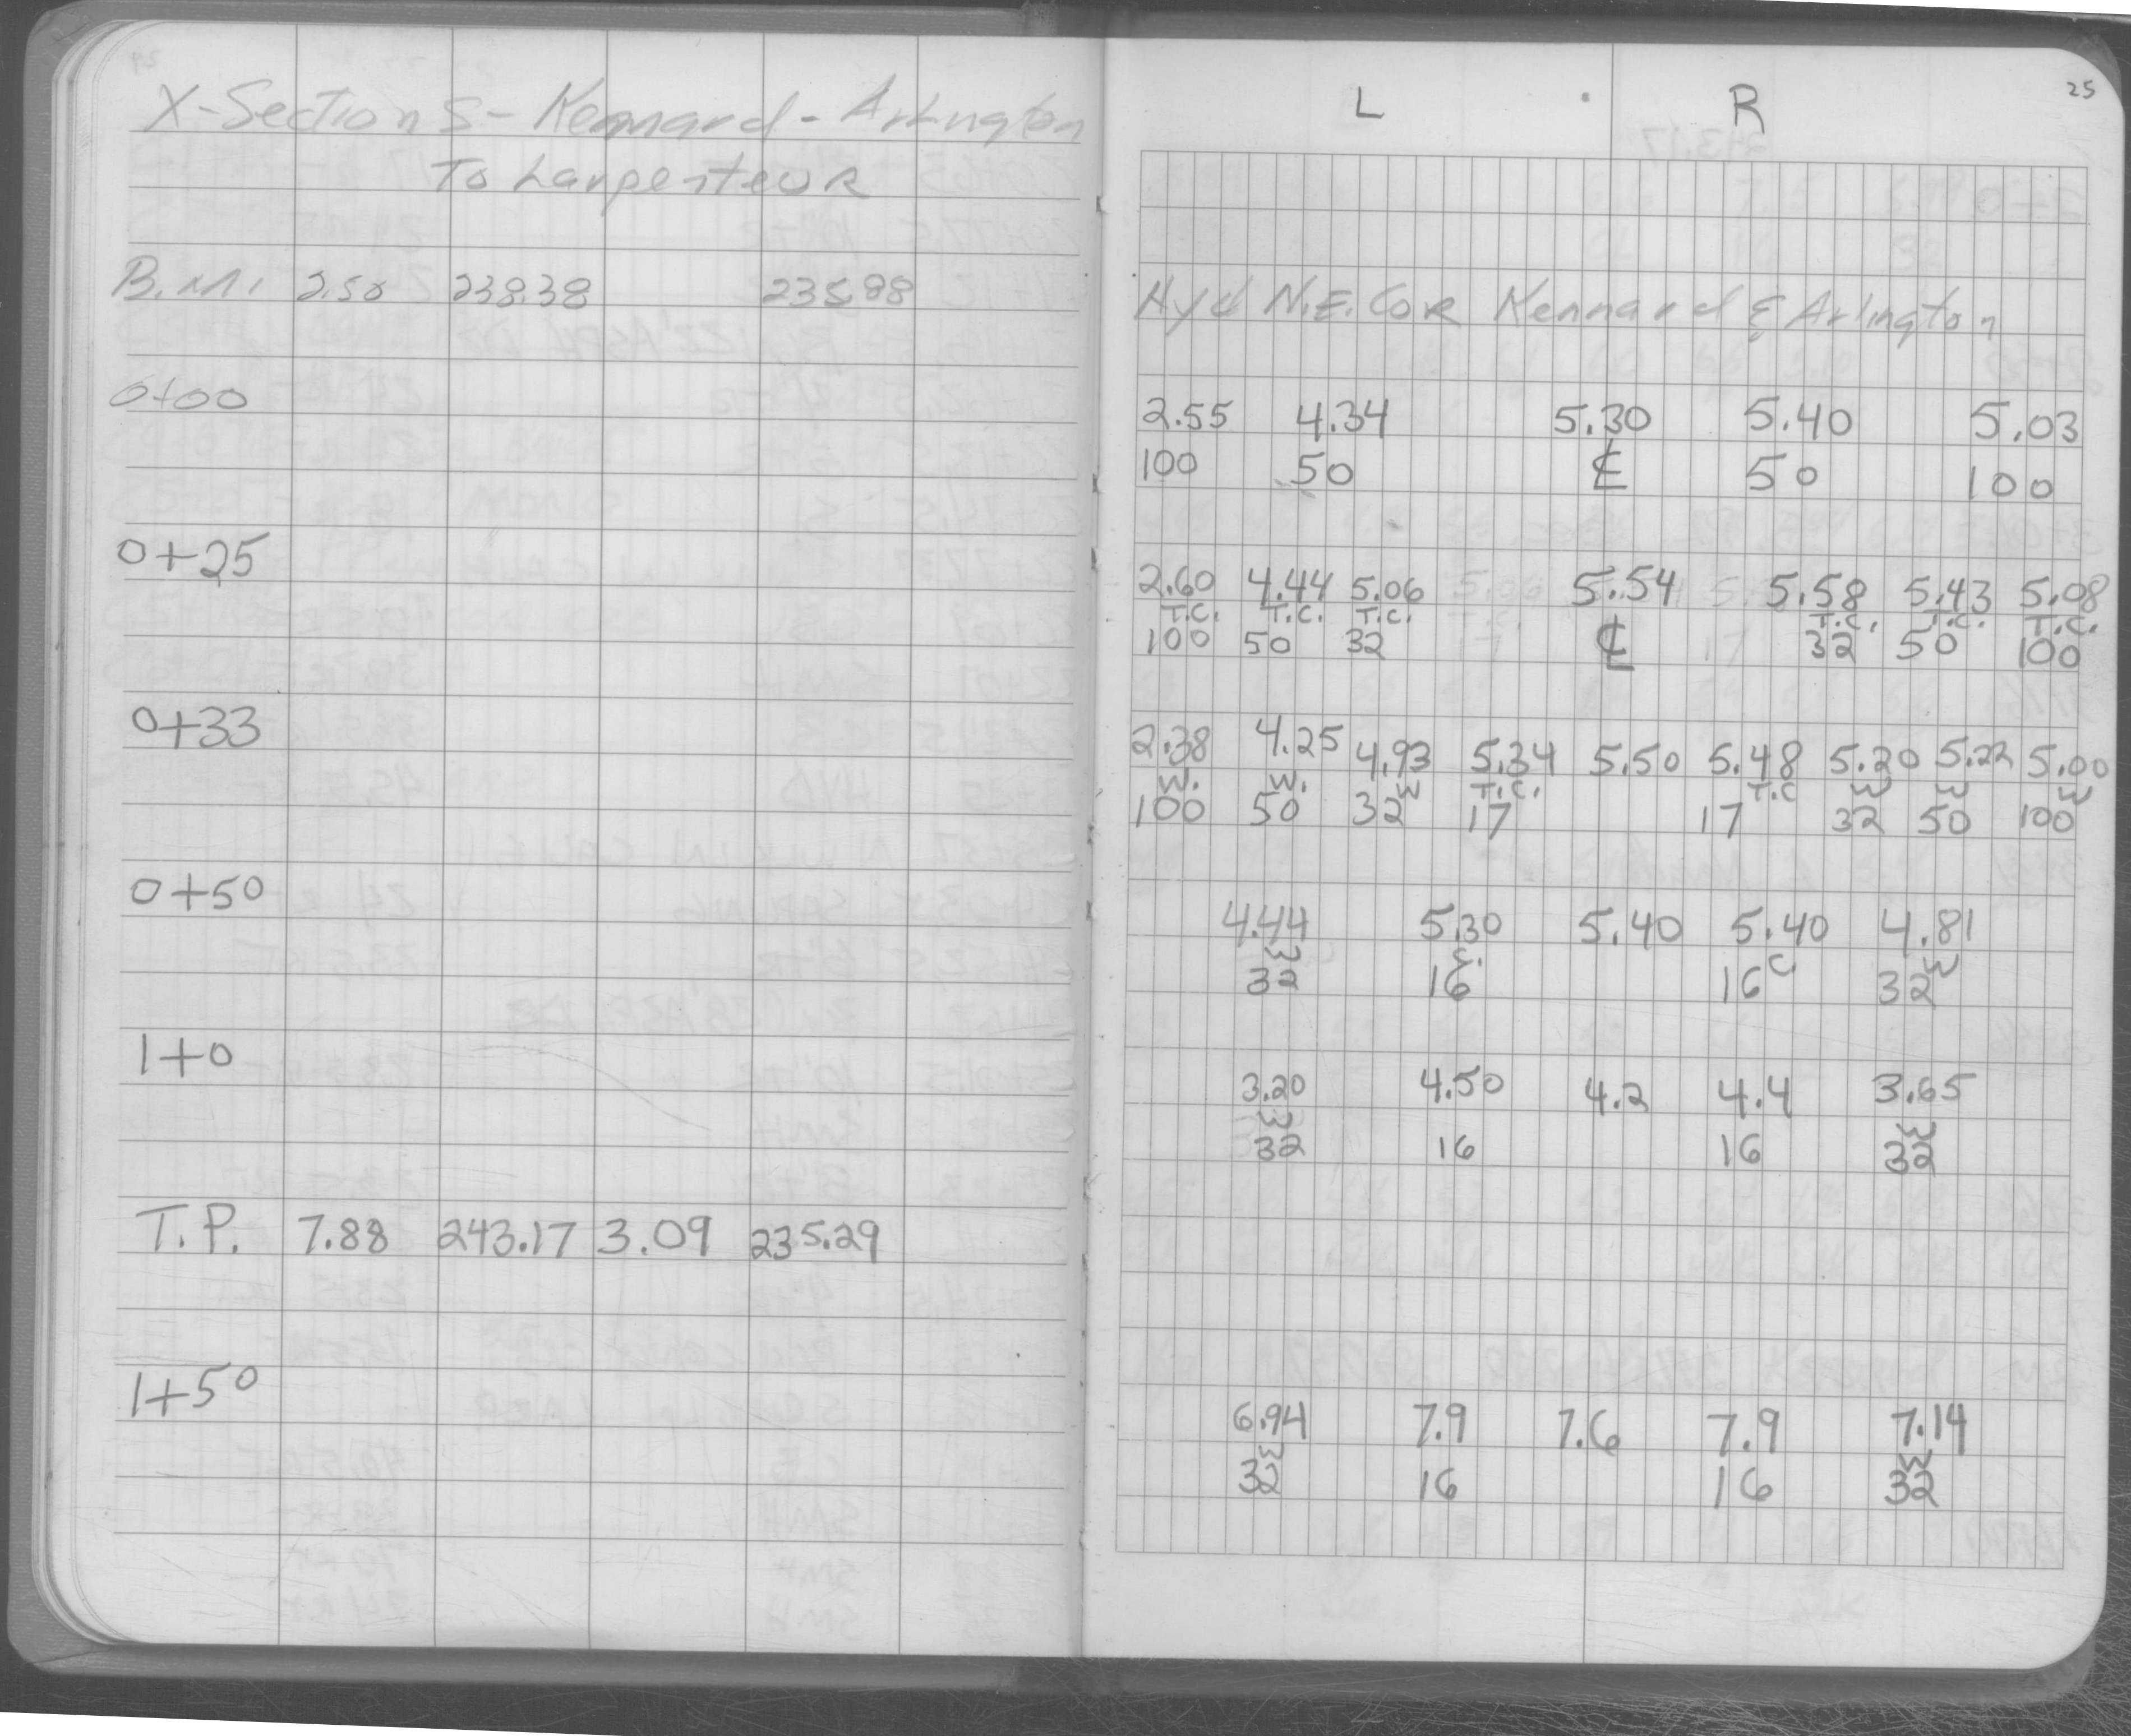 X-Sections - Kennard - Arlington
To Larpenteur
B.M. 2.50 238.38 235.88
0+00
0+25
0+33
0+50
1+0
T.P. 7.88 243.17 3.09 235.29
1+50
25
L R
Hyd N.E. Cor Kennard & Arlington
2.55 4.34 5.30 5.40 5.03
100 50 ℄ 50 100
2.60 4.44 5.06 5.54 5.58 5.43 5.08
T.C. T.C. T.C. T.C. T.C. T.C.
100 50 32 ℄ 32 50 100
2.38 4.25 4.93 5.34 5.50 5.48 5.20 5.22 5.00
W. W. W T.C. T.C W W W
100 50 32 17 17 32 50 100
4.44 5.30 5.40 5.40 4.81
W C. C W
32 16 16 32
3.20 4.50 4.2 4.4 3.65
W W
32 16 16 32
6.94 7.9 7.6 7.9 7.14
W W
32 16 16 32